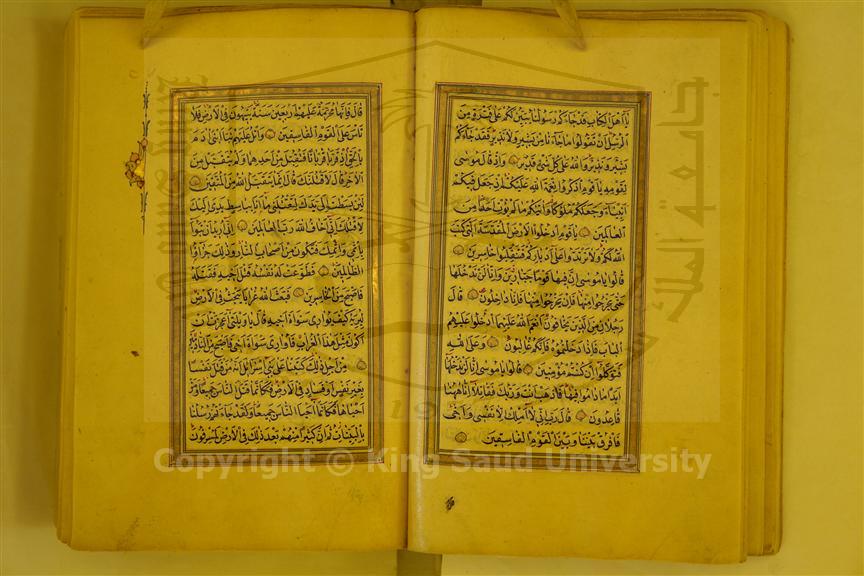 يا اهل الكتاب قد جاءكم رسولنا يبين لكم على فترة من
الرسل ان تقولوا ما جاءنا من بشير ولا نذير فقد جاءكم
بشير ونذير والله على كل شئ قدير واذ قال موسى
لقومه يا قوم اذكروا نعمة الله عليكم اذ جعل فيكم
انبياء وجعلكم ملوكا واتيكم ما لم يؤت احدا من
العالمين يا قوم ادخلوا الارض المقدسة التي كتب
الله لكم ولا ترتدوا على ادباركم فتنقلبوا خاسرين
قالوا يا موسى ان فيها قوما جبارين وانا لن ندخلها
حتى يخرجوا منها فان يخرجوا منها فانا داخلون قال
رجلان من الذين يخافون انعم الله عليهما ادخلوا عليهم
الباب فاذا دخلتموه فانكم غالبون وعلى الله
فتوكلوا ان كنتم مؤمنين قالوا يا موسى انا لن ندخلها
ابدا ما داموا فيها فاذهب انت وربك فقاتلا انا ههنا
قاعدون قال رب اني لا املك الا نفسي واخي
فافرق بيننا وبين القوم الفاسقين
قال فانها محرمة عليهم اربعين سنة يتيهون في الارض فلا
تاس على القوم الفاسقين واتل عليهم نبا ابني ادم
بالحق اذ قربا قربانا فتقبل من احدهما ولم يتقبل من
الاخر قال لاقتلنك قال انما يتقبل الله من المتقين
لئن بسطت الي يدك لتقتلني ما انا بباسط يدي اليك
لاقتلك اني اخاف الله رب العالمين اني اريد ان تبوا
باثمي واثمك فتكون من اصحاب النار وذلك جزاؤا
الظالمين فطوعت له نفسه قتل اخيه فقتله
فاصبح من الخاسرين فبعث الله غرابا يبحث في الارض
ليريه كيف يواري سواة اخيه قال يا ويلتى اعجزت ان
اكون مثل هذا الغراب فاواري سواة اخي فاصبح من النادمين
من اجل ذلك كتبنا على بني اسرائل انه من قتل نفسا
بغير نفس او فساد في الارض فكانما قتل الناس جميعا ومن
احياها فكانما احيا الناس جميعا ولقد جاءتهم رسلنا
بالبينات ثم ان كثيرا منهم بعد ذلك في الارض لمسرفون
جامعة الملك
19
Copyright © King Saud University